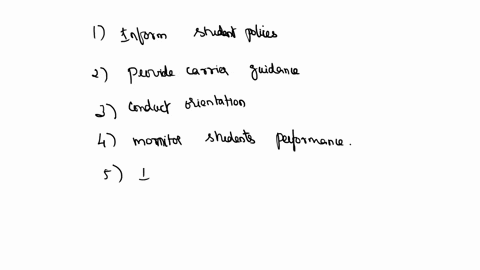 1) Inform student policies
2) Provide carrier guidance
3) conduct orientation
4) monitor students performance.
5) I